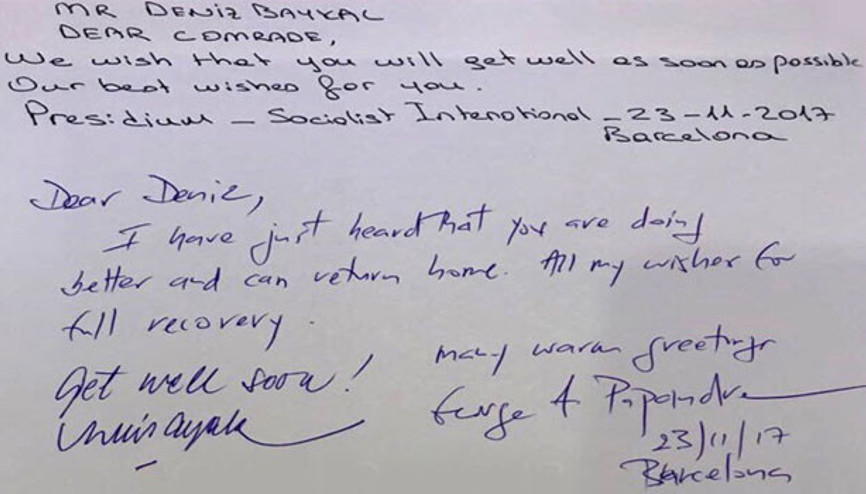 MR DENİZ BAYKAL
DEAR COMRADE,
We wish that you will get well as soon as possible
Our best wishes for you.
Presidium - Socialist Intenational - 23-11-2017
Barcelona
Dear Deniz,
I have just heard that you are doing
better and can return home. All my wishes for
full recovery.
Many warm greetings
George A Papandre
23/11/17
Barcelona
Get well soon!